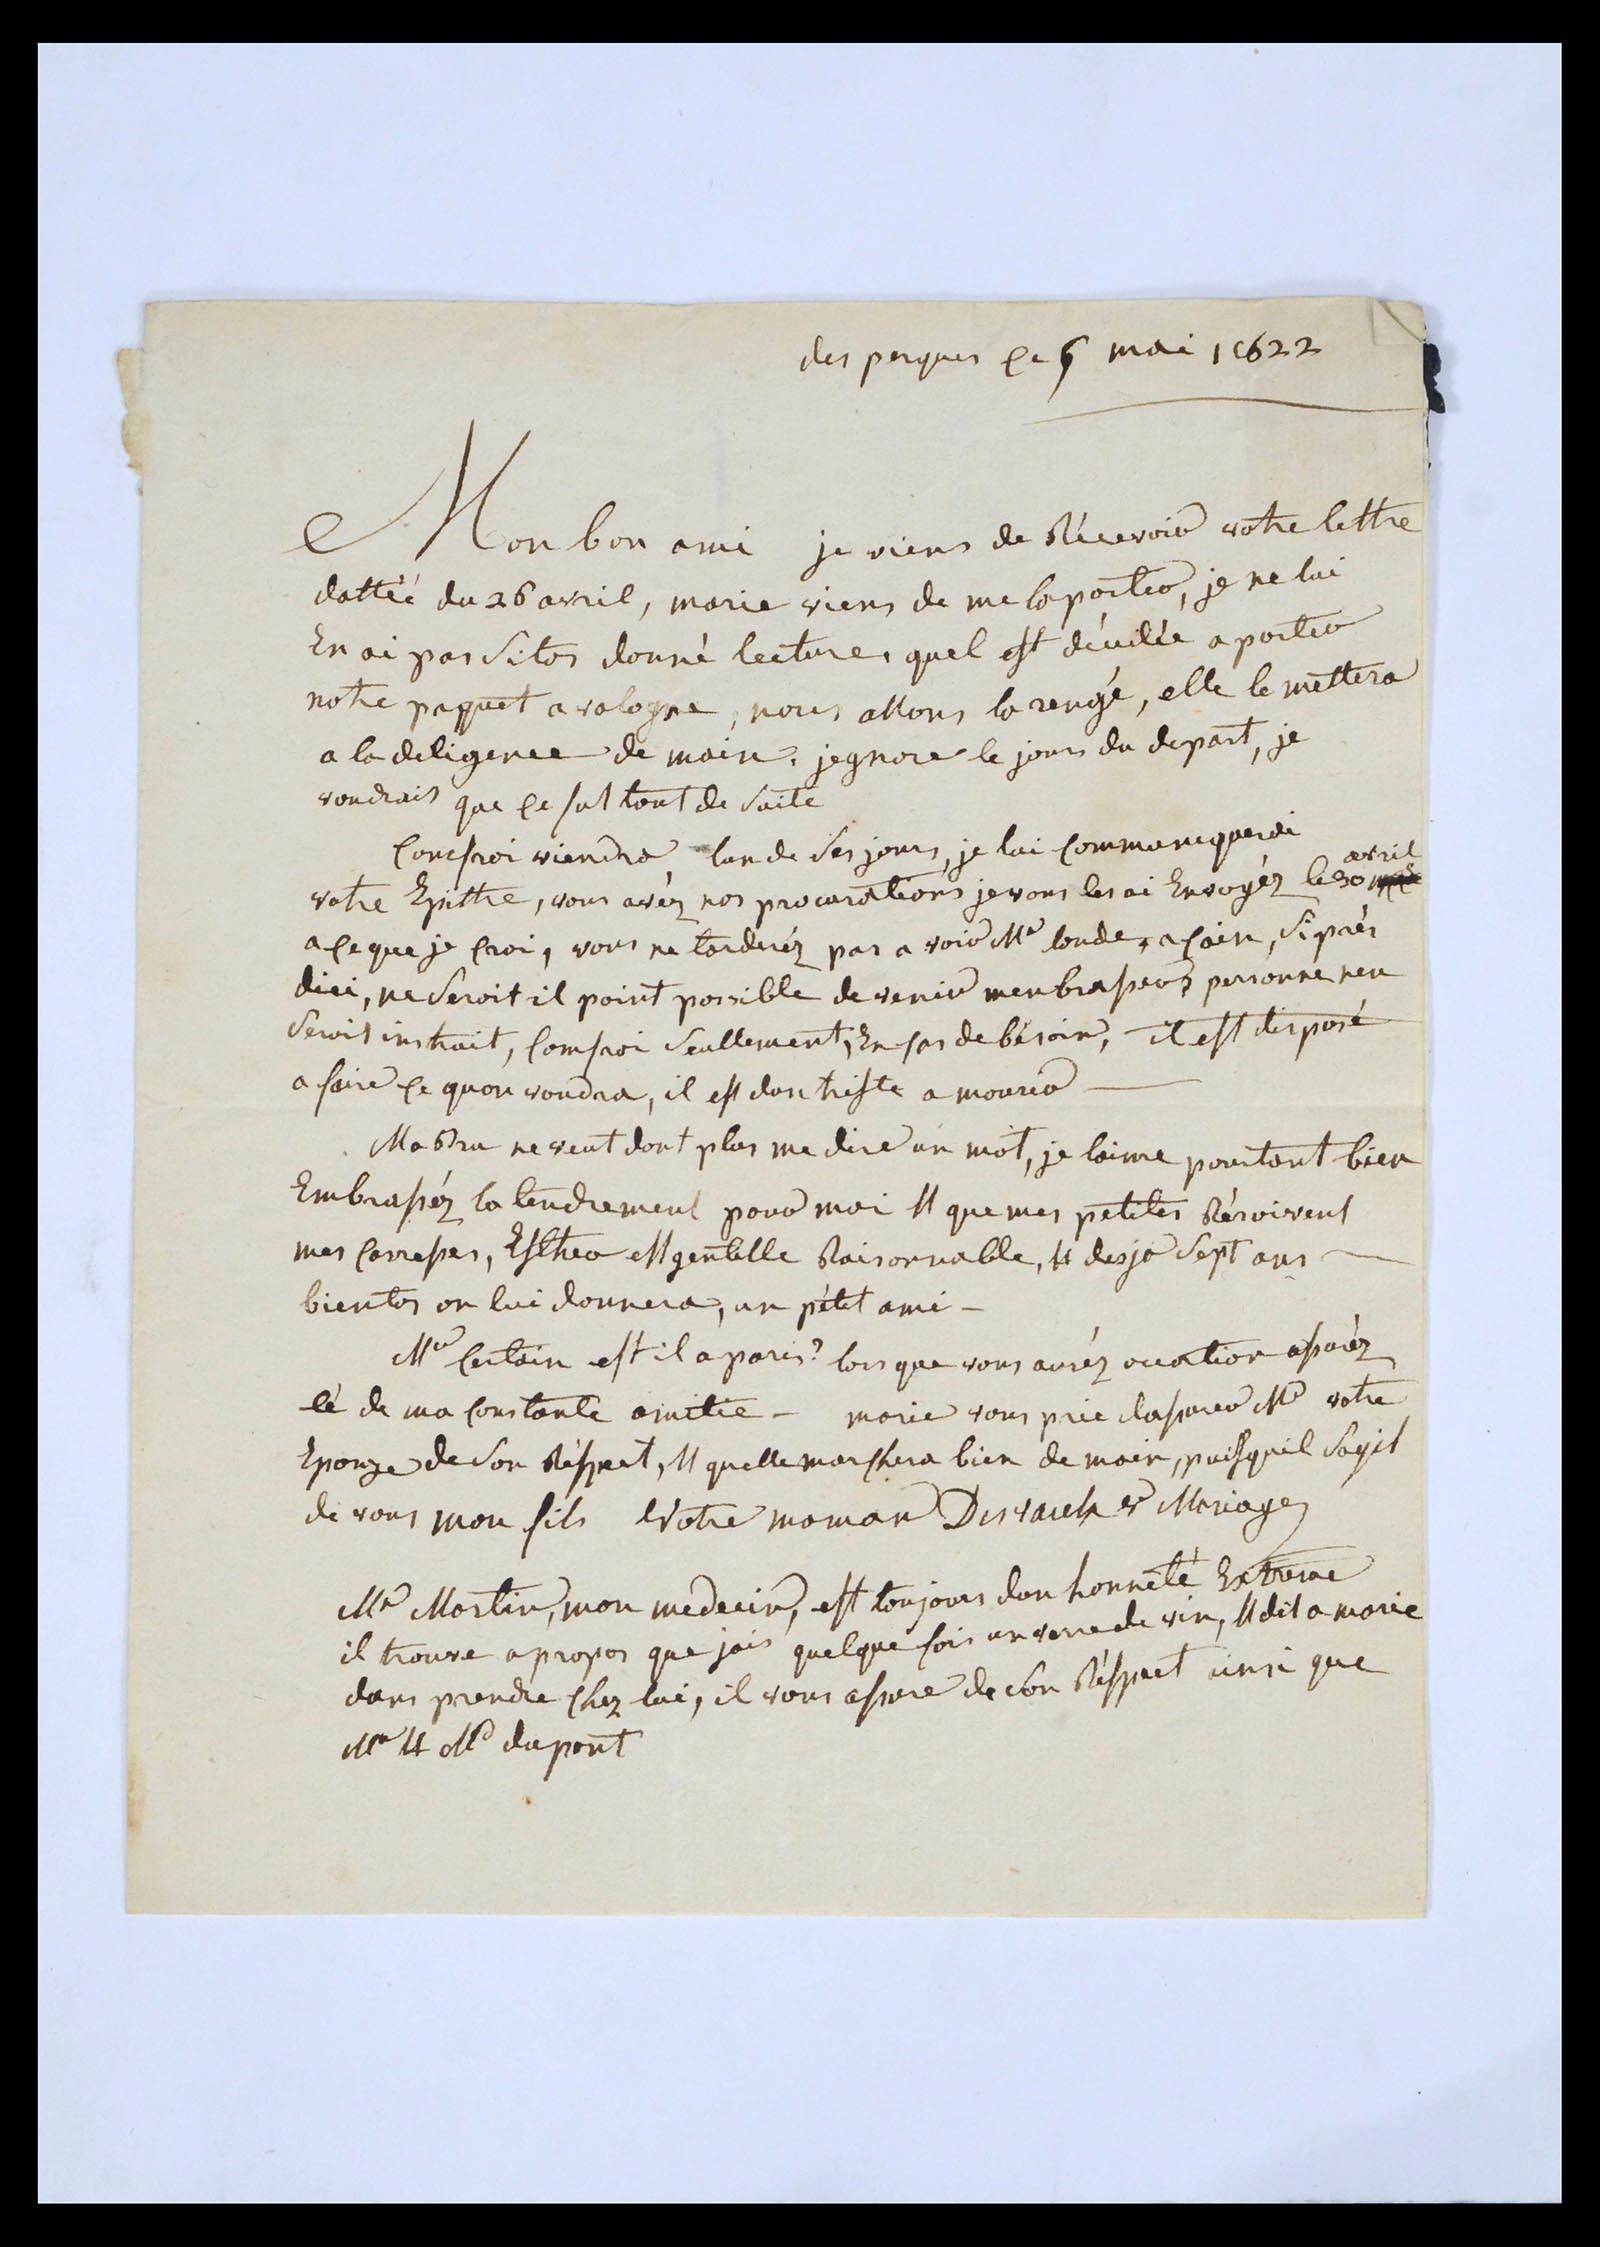 des perques ce 6 mai 1822
Mon bon ami je viens de Récevoir votre lettre
dattéé du 26 avril, marie viens de me la porter, je ne lui
En ai pas sitos donné lecture, quel est décidée a porter
notre paquet a valogne, nous allons la rengé, elle le mettera
a la deligence de main. jegnore le jours du depart, je
voudrais que ce fut tout de suite
Confroi viendra lun de ses jours, je lui communiquerai
votre Epittre, vous avéz nos procurations je vous les ai Envoyéz le 30 avril
a ce que je croi, vous ne tarderéz pas a voir Mr londe, a caen, si prés
dici, ne seroit il point possible de venir menbrasser, personne neu
seroit instruit, Comfroi seullement, En cas de bésoin, il est disposé
a faire ce quon voudra, il est dun triste a mourir
Ma Bru ne veut dont plus me dire un mot, je laime pourtant bien
Embrasséz la tendrement pour moi et que mes petites Résoivent
mes caresses, Esther est gentille Raisonnable, et desja sept ans
bientos on lui donnera, un pétit ami -
Mr Certain est il a paris? lors que vous auréz ocation assuréz
lé de ma constante amitie - marie vous prie dassurer Me votre
Epouze de son Réspect, et quelle marchera bien de main, puisquil sagit
de vous mon fils Votre maman Desvaux Mesiage
Mr Martin, mon medecin, est toujours dun honneté Extreme
il trouve a propos que jais quelque fois un verre de vin, et dit a marie
dans prendre chez lui, il vous assure de son Réspect insi que
Mr et Me dupont